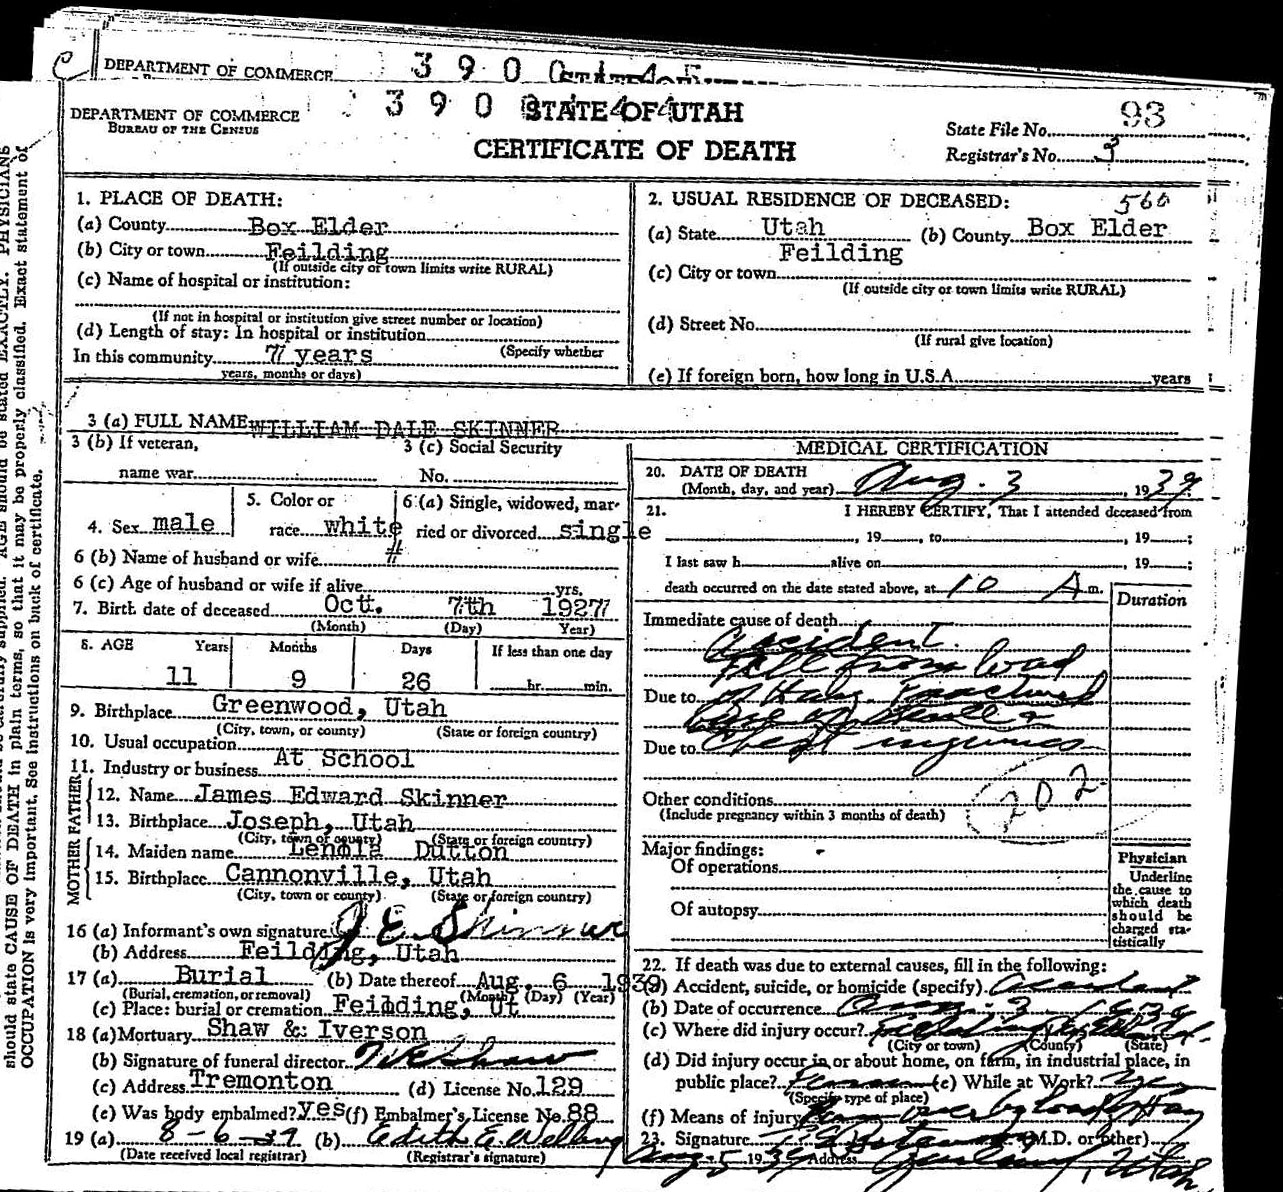 DEPARTMENT OF COMMERCE 3 9 0
DEPARTMENT OF COMMERCE 3 9 0 STATE OF UTAH 93
BUREAU OF THE CENSUS State File No.
CERTIFICATE OF DEATH Registrar's No. 3
1. PLACE OF DEATH:
(a) County Box Elder
(b) City or town Feilding
(If outside city or town limits write RURAL)
(c) Name of hospital or institution:
(If not in hospital or institution give street number or location)
(d) Length of stay: In hospital or institution
(Specify whether
In this community 7 years
years, months or days)
2. USUAL RESIDENCE OF DECEASED: 560
(a) State Utah (b) County Box Elder
Feilding
(c) City or town
(If outside city or town limits write RURAL)
(d) Street No.
(If rural give location)
(e) If foreign born, how long in U.S.A. years
3 (a) FULL NAME WILLIAM DALE SKINNER
3 (b) If veteran, 3 (c) Social Security
name war No.
4. Sex male
5. Color or
race white
6 (a) Single, widowed, mar-
ried or divorced single
6 (b) Name of husband or wife
6 (c) Age of husband or wife if alive yrs.
7. Birth date of deceased Oct. 7th 1927
(Month) (Day) Year)
8. AGE Years Months Days If less than one day
11 9 26 hr. min.
9. Birthplace Greenwood, Utah
(City, town, or county) (State or foreign country)
10. Usual occupation
At School
11. Industry or business
FATHER
12. Name James Edward Skinner
13. Birthplace Joseph, Utah
(City, town or county) (State or foreign country)
MOTHER
14. Maiden name Dutton
15. Birthplace Cannonville, Utah
(City, town or county) (State or foreign country)
16 (a) Informant's own signature J E Skinner
(b) Address Feilding, Utah
17 (a) Burial (b) Date thereof Aug. 6 1939
(Burial, cremation, or removal) (Month) (Day) (Year)
(c) Place: burial or cremation Feilding, Ut
18 (a) Mortuary Shaw & Iverson
(b) Signature of funeral director Shaw
(c) Address Tremonton (d) License No. 129
(e) Was body embalmed? yes (f) Embalmer's License No. 88
19 (a) 8-6-39 (b) Edith E. Welling
(Date received local registrar) (Registrar's signature)
MEDICAL CERTIFICATION
20. DATE OF DEATH
(Month, day, and year) Aug. 3 , 1939.
21. I HEREBY CERTIFY, That I attended deceased from
, 19 , to , 19 ;
I last saw h alive on , 19 ;
death occurred on the date stated above, at 10 A m.
Duration
Immediate cause of death
accident.
Fell from load
Due to of Hay. Fractured
base of skull &
Due to Chest injuries
202
Other conditions
(Include pregnancy within 3 months of death)
Major findings:
Of operations
Of autopsy
Physician
Underline
the cause to
which death
should be
charged sta-
tistically
22. If death was due to external causes, fill in the following:
(a) Accident, suicide, or homicide (specify) Accident
(b) Date of occurrence Aug. 3 1939
(c) Where did injury occur? Feilding
(City or town) (County) (State)
(d) Did injury occur in or about home, on farm, in industrial place, in
public place? Farm (e) While at Work? Yes
(Specify type of place)
(f) Means of injury Run over by load of Hay
23. Signature (M.D. or other)
Aug. 5 1939 Address Garland, Utah
should state CAUSE OF DEATH in plain terms, so that it may be properly classified. Exact statement of
OCCUPATION is very important. See instructions on back of certificate.